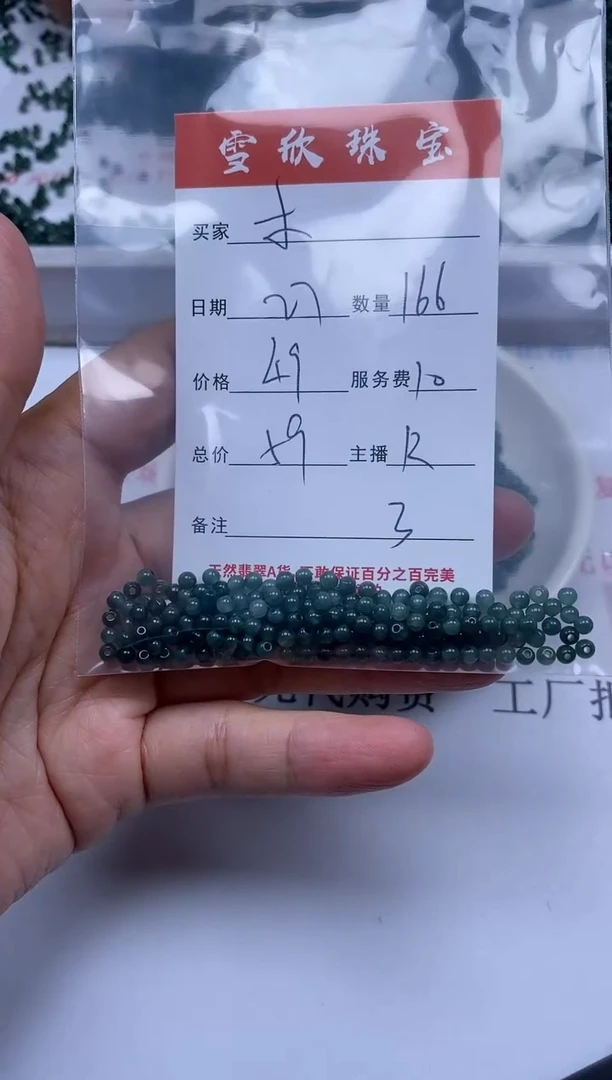 雪欣珠宝
买家 木
日期 27 数量 166
价格 49 服务费 10
总价 59 主播 R
备注 3
天然翡翠A货 不敢保证百分之百完美
工厂